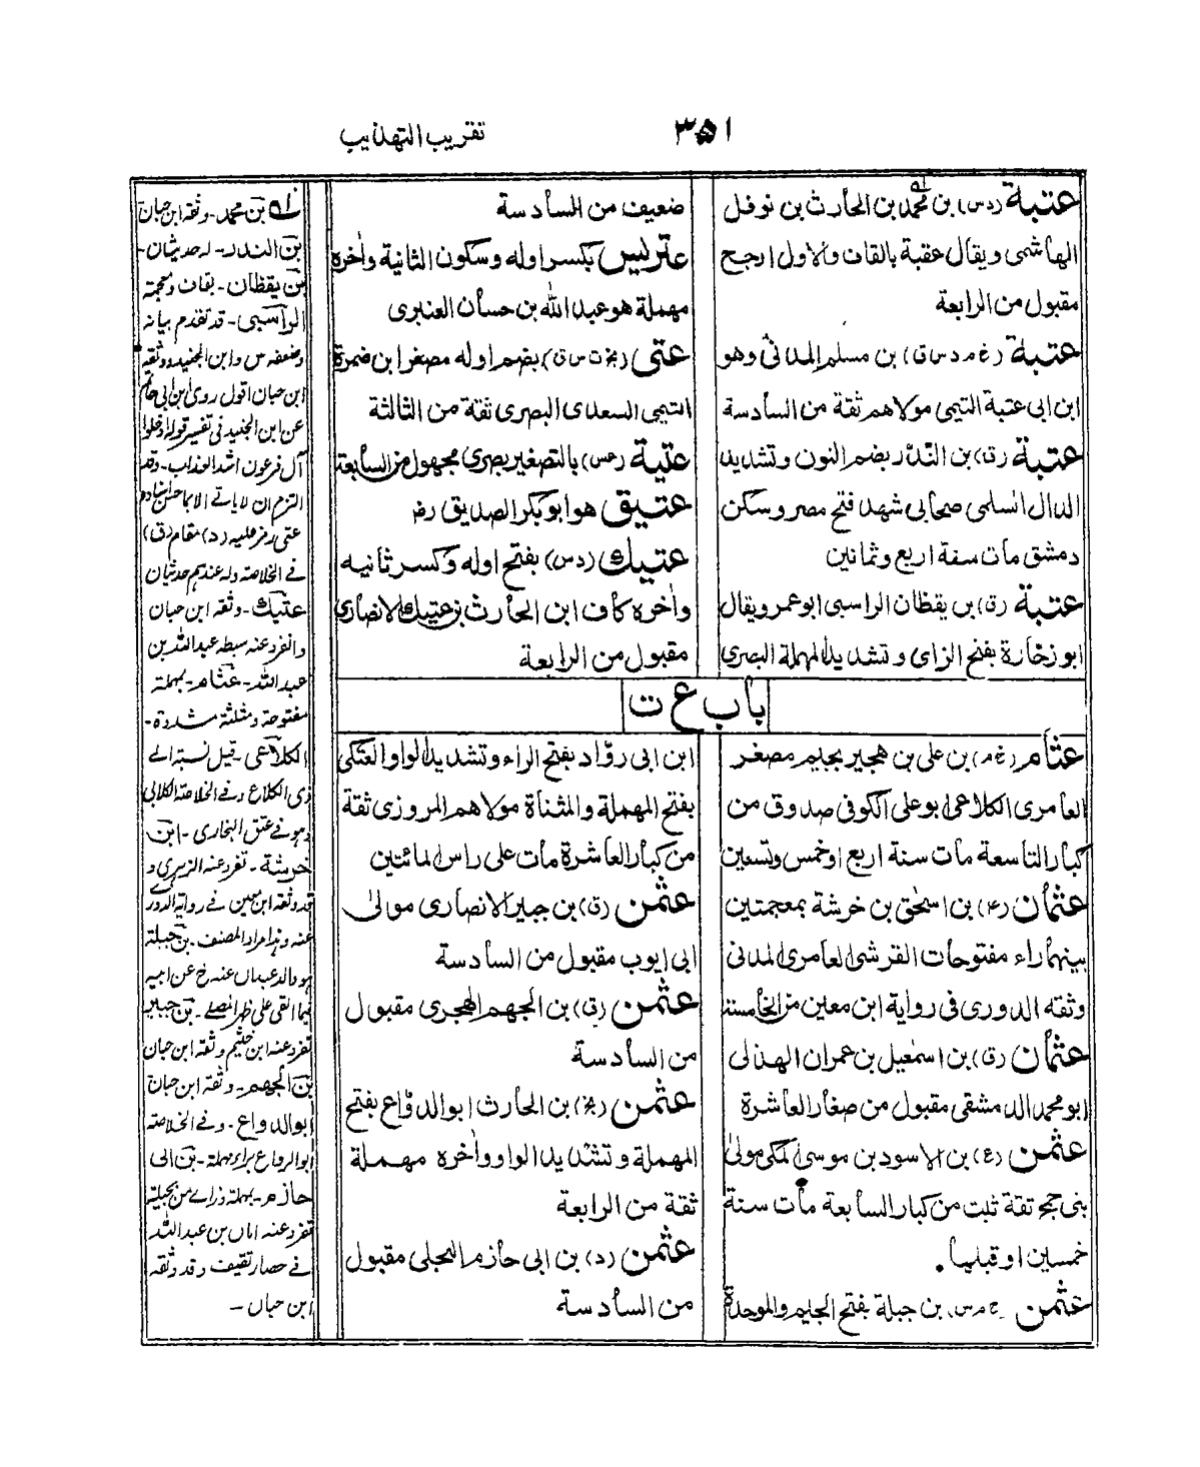 ٣٥١
تقريب التهذيب
عتبة (دس) بن محمد بن الحارث بن نوفل
الهاشمى ويقال عقبة بالقاف والاول ارجح
مقبول من الرابعة
عتبة (خ م د س ق) بن مسلم المدنى وهو
ابن ابى عتبة التيمى مولاهم ثقة من السادسة
عتبة (ق) بن النُّدَّر بضم النون وتشديد
الدال السلمى صحابى شهد فتح مصر وسكن
دمشق مات سنة اربع وثمانين
عتبة (ق) بن يقظان الراسبى ابو عمرو يقال
ابو زحارة بفتح الزاى وتشديد المهملة البصرى
ضعيف من السادسة
عتريس بكسر اوله وسكون الثانية واٰخره
مهملة هو عبد الله بن حسان العنبرى
عتى (بخ ت س ق) بضم اوله مصغر ابن ضمرة
التيمى السعدى البصرى ثقة من الثالثة
عتيبة (عس) بالتصغير بصرى مجهول من السابعة
عتيق هو ابو بكر الصديق رضـ
عتيك (دس) بفتح اوله وكسر ثانيه
واٰخره كاف ابن الحارث بن عتيك الانصارى
مقبول من الرابعة
باب ع ث
عثام (خ م) بن على بن هجير بجيم مصغر
العامرى الكلاعى ابو على الكوفى صدوق من
كبار التاسعة مات سنة اربع او خمس وتسعين
عثمان (ع) بن اسحٰق بن خرشة بمعجمتين
بينهما راء مفتوحات القرشى العامرى المدنى
وثقه الدورى فى رواية ابن معين من الخامسة
عثمان (ق) بن اسمعيل بن عمران الهذلى
ابو محمد الدمشقى مقبول من صغار العاشرة
عثمن (ع) بن الاسود بن موسى المكى مولىٰ
بنى جمح ثقة ثبت من كبار السابعة مات سنة
خمسين او قبلها .
عثمن (خ م س) بن جبلة بفتح الجيم والموحدة
ابن ابى روّاد بفتح الراء وتشديد الواو العتكى
بفتح المهملة والمثناة مولاهم المروزى ثقة
من كبار العاشرة مات على راس المائتين
عثمن (ق) بن جبير الانصارى مولىٰ
ابى ايوب مقبول من السادسة
عثمن (ق) بن الجهم الهجرى مقبول
من السادسة
عثمن (بخ) بن الحارث ابو الدوّاع بفتح
المهملة وتشديد الواو واٰخره مهملة
ثقة من الرابعة
عثمن (د) بن ابى حازم البجلى مقبول
من السادسة
بن محمد - وثقه ابن حبان
بن الندر - له حديثان -
بن يقظان - بقاف ومعجمة
الراسبى - قد تقدم بيانه
وضعفه س وابن الجنيد ووثقه
ابن حبان اقول روى ابن ابى حاتم
عن ابن الجنيد فى تفسير قوله ادخلوا
آل فرعون اشد العذاب - وقد
التزم ان لا ياتے الا باحسن اسناده
عتى رمز عليه (د) مقام (ق)
فے الخلاصة وله عندهم حديثان
عتيك - وثقه ابن حبان
وانفرد عنه سبطه عبد الله بن
عبد الله - عثام - بمهملة
مفتوحة ومثلثة مشددة -
الكلاعى - قيل نسبة الے
ذى الكلاع وفے الخلاصة الكلابى
وهو فے عتق البخارى - ابن
خرشة - تفرد عنه الزهرى و
قد وثقه ابن معين فے رواية الدورى
عنه وهذا مراد المصنف - بن جبلة
هو والد عبدان عنه خ عن ابيه
فيما القى على ظهر المصلے - بن جبير
تفرد عنه ابن خثيم وثقه ابن حبان
بن الجهم - وثقه ابن حبان
ابو الدواع - وفے الخلاصة
ابو الرواع براء مهملة - بن ابى
حازم - بمهملة وزاے من بجيلة
تفرد عنه ابان بن عبد الله
فے حصار ثقيف وقد وثقه
ابن حبان -